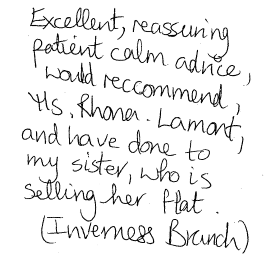 Excellent, reassuring
patient calm advice,
would reccommend,
Ms. Rhona. Lamont,
and have done to
my sister, who is
selling her flat.
(Inverness Branch)